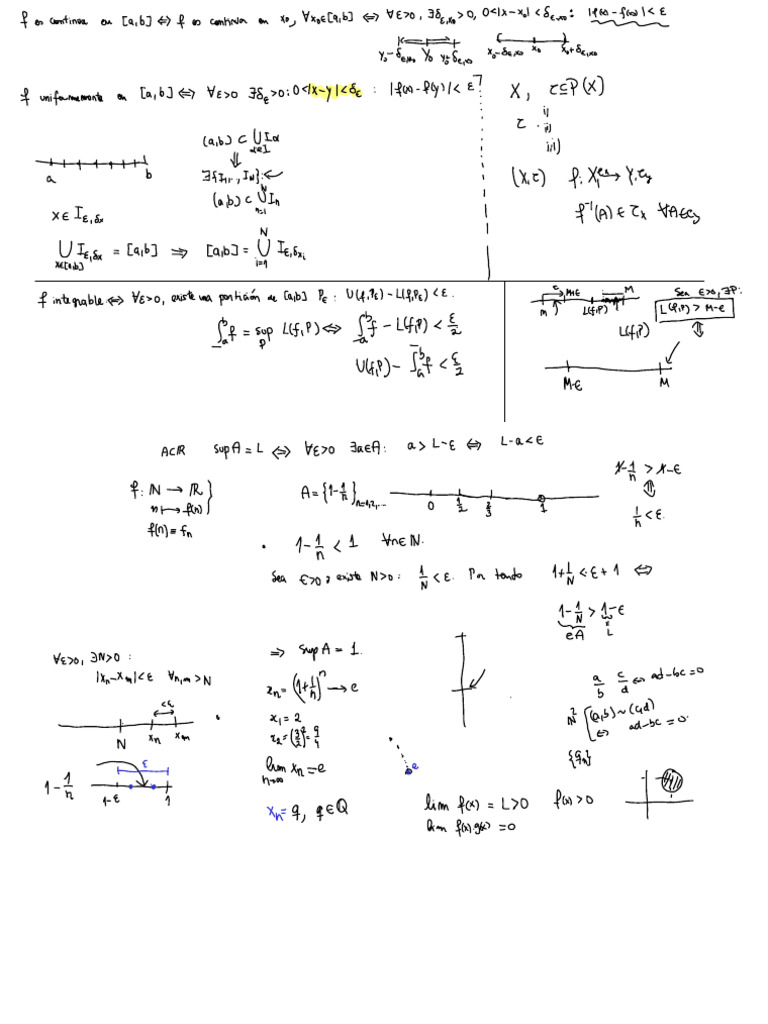 f es continua en [a,b] ⇔ f es continua en x₀, ∀x₀∈[a,b] ⇔ ∀ε>0, ∃δ_{ε,x₀}>0, 0<|x-x₀|<δ_{ε,x₀}: |f(x)-f(x₀)|<ε
y₀-δ_{ε,y₀} y₀ y₀+δ_{ε,y₀} x₀-δ_{ε,x₀} x₀ x₀+δ_{ε,x₀}
f uniformemente en [a,b] ⇔ ∀ε>0 ∃δ_ε>0: 0<|x-y|<δ_ε : |f(x)-f(y)|<ε
X, τ⊆P(X)
τ · i)
ii)
iii)
(a,b) ⊂ ⋃_{α∈I} I_α
⇓
a b
∃{I₁, ..., I_N}:
(a,b) ⊂ ⋃_{n=1}^{N} I_n
(X,τ) f: X,τₓ → Y,τ_y
f⁻¹(A) ∈ τₓ ∀A∈τ_y
x∈ I_{ε,δx}
⋃_{x∈[a,b]} I_{ε,δx} = [a,b] ⇒ [a,b] = ⋃_{i=1}^{N} I_{ε,δx_i}
f integrable ⇔ ∀ε>0, existe una partición de [a,b] P_ε : U(f,P_ε)-L(f,P_ε)<ε.
∫_a^b f = sup_P L(f,P) ⇔ ∫_a^b f - L(f,P) < ε/2
U(f,P) - ∫_a^b f < ε/2
ε m+ε M
m L(f,P)
Sea ε>0, ∃P:
L(f,P) > M-ε
L(f,P) ⇕
M-ε M
A⊂R sup A = L ⇔ ∀ε>0 ∃a∈A: a>L-ε ⇔ L-a<ε
f: N → R
n ↦ f(n)
f(n) = f_n
A = {1-1/n}_{n=1,2,...}
0 1/2 2/3 1
1-1/n > 1-ε
⇕
1/n < ε.
• 1-1/n < 1 ∀n∈N.
Sea ε>0, existe N>0: 1/N < ε. Por tanto 1+1/N < ε+1 ⇔
1-1/N > 1-ε
∈A L
⇒ sup A = 1.
∀ε>0, ∃N>0:
|x_n-x_m|<ε ∀n,m>N
<ε
N x_n x_m
x_n = (1+1/n)^n → e
x₁ = 2
x₂ = (3/2)² = 9/4
lim_{n→∞} x_n = e
x_n = q, q∈Q
1-1/n
ε
1-ε 1
e
a/b c/d ⇔ ad-bc=0
N² [(a,b)~(c,d)
⇔ ad-bc=0.
{q_n}
lim f(x) = L>0 f(x)>0
lim f(x)·g(x) = 0